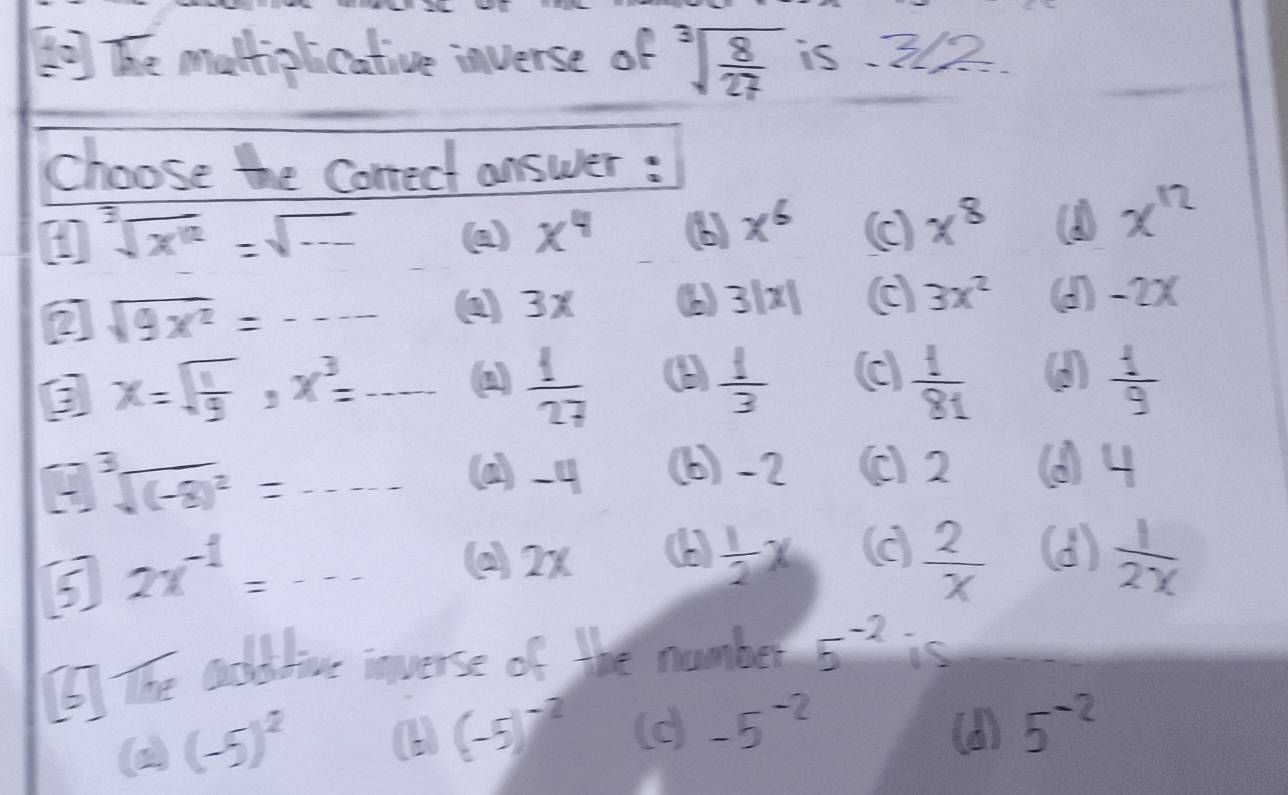 [10] The multiplicative inverse of ³√(8/27) is .3/2...
Choose the correct answer :
[1] ³√(x¹²) = √--- (a) x⁴ (b) x⁶ (c) x⁸ (d) x¹²
[2] √(9x²) = ----- (a) 3x (b) 3|x| (c) 3x² (d) -2x
[3] x = √(1/9) , x³ = ----- (a) 1/27 (b) 1/3 (c) 1/81 (d) 1/9
[4] ³√(-8)² = ----- (a) -4 (b) -2 (c) 2 (d) 4
[5] 2x⁻¹ = --- (a) 2x (b) 1/2 x (c) 2/x (d) 1/2x
[6] The additive inverse of the number 5⁻² is ----
(a) (-5)² (b) (-5)⁻² (c) -5⁻² (d) 5⁻²